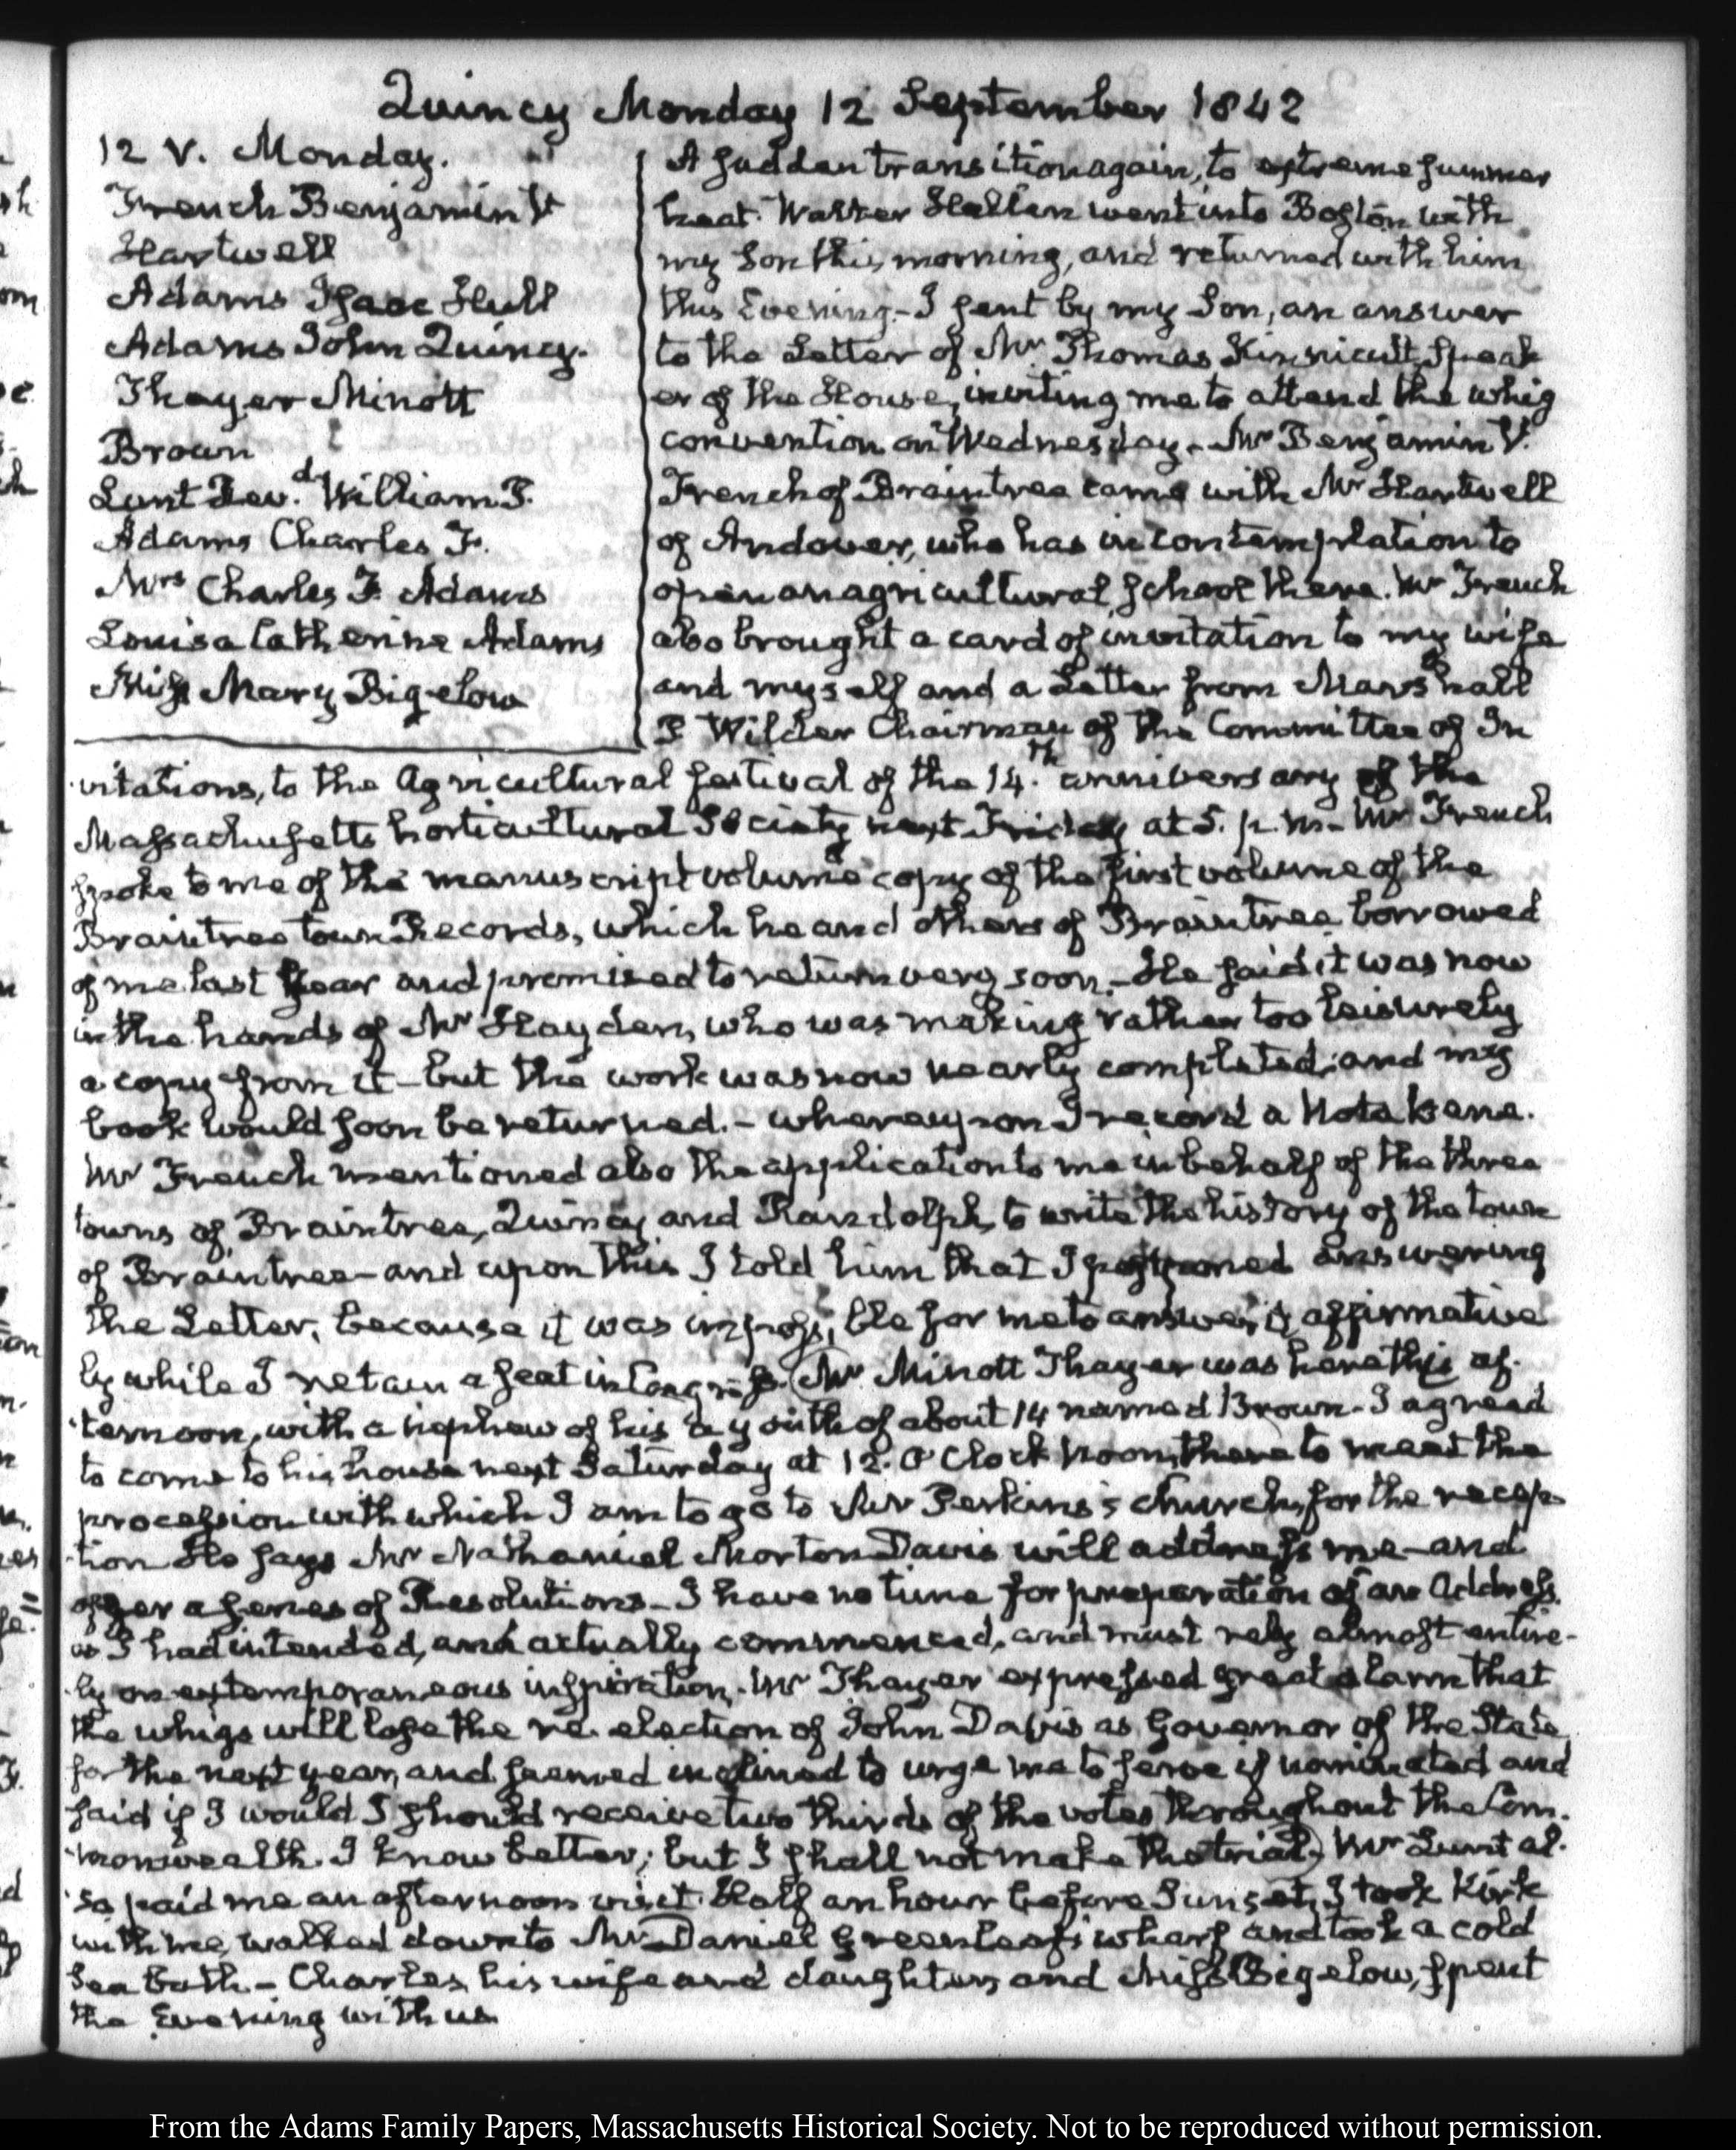 Quincy Monday 12 September 1842
12 V. Monday.
French Benjamin V
Hartwell
Adams Isaac Hull
Adams John Quincy.
Thayer Minott
Brown
Lunt Rev.d William P.
Adams Charles F.
Mrs Charles F. Adams
Louisa Catherine Adams
Miss Mary Bigelow
A sudden transition again, to extreme summer
heat. Walker Hellen went into Boston with
my Son this morning, and returned with him
this Evening.- I sent by my Son, an answer
to the Letter of Mr Thomas Kinnicutt, Speak
er of the House, inviting me to attend the whig
convention on Wednesday- Mr Benjamin V.
French of Braintree came with Mr Hartwell
of Andover, who has in contemplation to
open an agricultural school there. Mr French
also brought a card of invitation to my wife
and myself and a Letter from Marshall
P Wilder Chairman of the Committee of In
vitations, to the Agricultural festival of the 14.th anniversary of the
Massachusetts horticultural Society next Friday at 5. p.m- Mr French
spoke to me of the manuscript volume copy of the first volume of the
Braintree town Records, which he and others of Braintree borrowed
of me last year and promised to return very soon.- He said it was now
in the hands of Mr Hayden, who was making rather too leisurely
a copy from it- but the work was now nearly completed; and my
book would soon be returned.- whereupon I record a Nota bene.
Mr French mentioned also the application to me in behalf of the three
towns of Braintree, Quincy and Randolph, to write the history of the town
of Braintree- and upon this I told him that I postponed answering
the Letter, because it was impossible for me to answer it affirmative
ly while I retain a seat in Congress. (Mr Minott Thayer was here this af-
ternoon, with a nephew of his a youth of about 14 named Brown- I agreed
to come to his house next Saturday at 12. O'Clock Noon, there to meet the
procession with which I am to go to Mr Perkins's church, for the recep-
tion He says Mr Nathaniel Morton Davis will address me- and
offer a series of Resolutions- I have no time for preparation of an Address.
as I had intended, and actually commenced, and must rely almost entire-
ly on extemporaneous inspiration. Mr Thayer expressed great alarm that
the whigs will lose the re-election of John Davis as Governor of the State
for the next year, and seemed inclined to urge me to serve if nominated and
said if I would I should receive two thirds of the votes throughout the Com-
monwealth. I know better; but I shall not make the trial.) Mr Lunt al-
so paid me an afternoon visit. Half an hour before Sunset, I took Kirk
with me, walked down to Mr Daniel Greenleaf's wharf and took a cold
Sea bath.- Charles, his wife and daughter, and Miss Bigelow, spent
the Evening with us
From the Adams Family Papers, Massachusetts Historical Society. Not to be reproduced without permission.